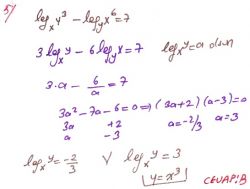 5)
log_x y³ - log_y x⁶ = 7
3 log_x y - 6 log_y x = 7
log_x y = a olsun
3·a - 6/a = 7
3a² - 7a - 6 = 0 ⇒ (3a+2)(a-3) = 0
3a +2 a = -2/3 a = 3
a -3
log_x y = -2/3 ∨ log_x y = 3
y = x³
CEVAP: B